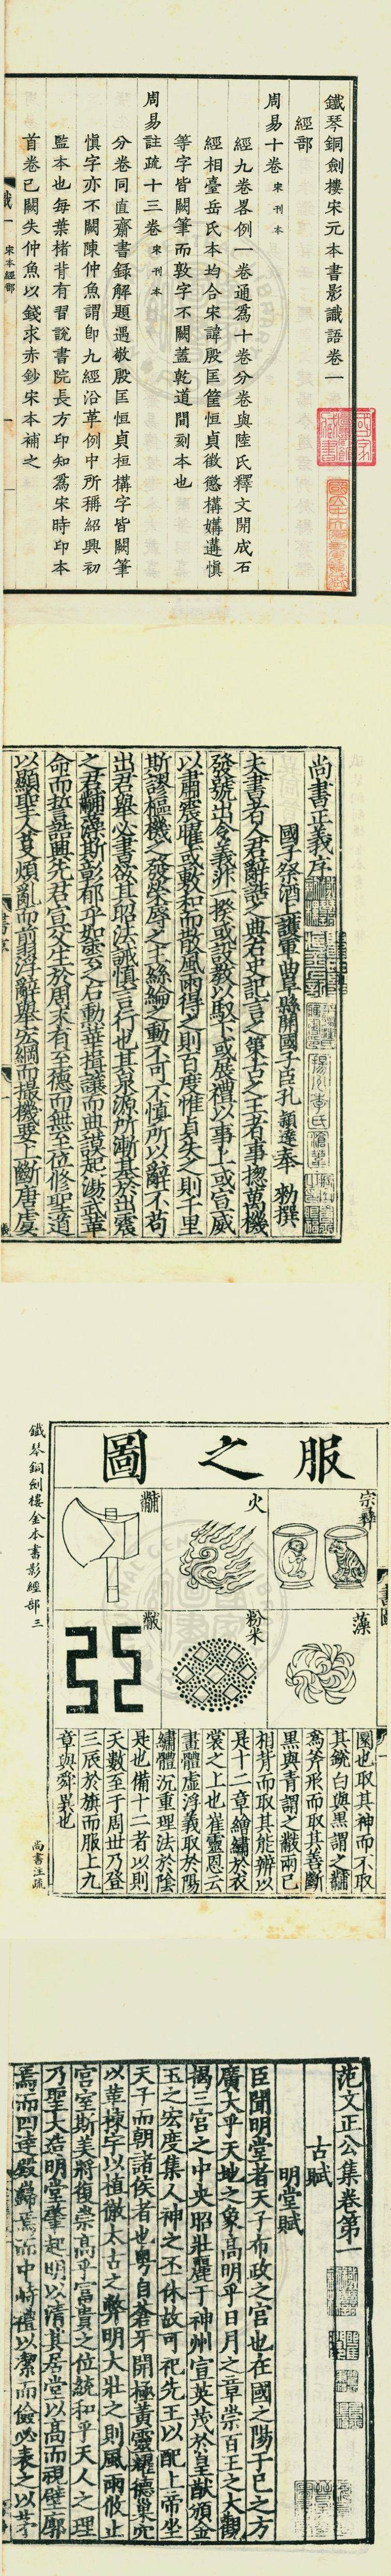 鐵琴銅劍樓宋元本書影識語卷一
經部
周易十卷 宋刊本
經九卷畧例一卷通爲十卷分卷與陸氏釋文開成石
經相臺岳氏本均合宋諱殷匡筐恒貞徵懲構媾遘慎
等字皆闕筆而敦字不闕蓋乾道間刻本也
周易註疏十三卷 宋刊本
分卷同直齋書録解題遇敬殷匡恒貞桓構字皆闕筆
愼字亦不闕陳仲魚謂卽九經沿革例中所稱紹興初
監本也每葉楮背有習說書院長方印知爲宋時印本
首卷已闕失仲魚以錢求赤鈔宋本補之
宋本經部
尚書正義序
國子祭酒上護軍曲阜縣開國子臣孔穎達奉 勑撰
夫書者人君辭誥之典右史記言之策古之王者事揔萬機
發號出令義非一揆或設教以馭下或展禮以事上或宣威
以肅震曜或敷和而散風雨得之則百度惟貞失之則千里
斯謬樞機之發榮辱之主絲綸之動不可不慎所以辭不苟
出君舉必書欲其昭法誡慎言行也其泉源所漸基於出震
之君黼藻斯彰郁乎如雲之后勳華揖讓而典謨起湯武革
命而誓誥興先君宣父生於周末有至德而無至位修聖道
以顯聖人芟煩亂而翦浮辭舉宏綱而撮機要上斷唐虞
服之圖
宗彝
火
黼
藻
粉米
黻
圜也取其神而不取
其銳白與黑謂之黼
爲斧形而取其善斷
黑與青謂之黻兩己
相背而取其能辨以
是十二章繪繡於衣
裳之上也崔靈恩云
畫體虛浮義取於陽
繡體沉重理法於陰
是也備十二者以則
天數至于周世乃登
三辰於旗而服上九
章與舜異也
尚書注疏
鐵琴銅劍樓金本書影經部 三
范文正公集卷第一
古賦
明堂賦
臣聞明堂者天子布政之宮也在國之陽于巳之方
廣大乎天地之象高明乎日月之章崇百王之大觀
揭三宮之中央昭壯麗于神州宣英茂於皇猷頒金
玉之宏度集人神之丕休故可祀先王以配上帝坐
天子而朝諸侯者也粤自蒼牙開極黃靈耀德巢穴
以革棟宇以植徹太古之弊明大壯之則風雨攸止
宮室斯美將復崇高乎富貴之位統和乎天人之理
乃聖大造明堂肇起明以清其居堂以高而視壁廓
焉而四達殿巋焉而中峙禮以潔而儉必表之以茅